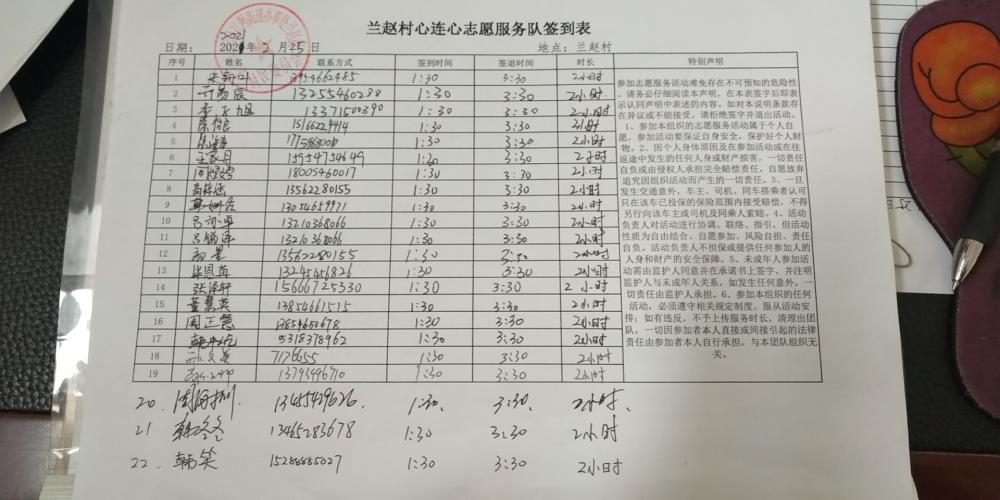 兰赵村心连心志愿服务队签到表
日期: 2021年2月25日 地点:兰赵村
序号 姓名 联系方式 签到时间 签退时间 时长 特别声明
1 1:30 3:30 2小时
2 13255460288 1:30 3:30 2小时
3 13371500390 1:30 3:30 2小时
4 15166229414 1:30 3:30 2小时
5 1:30 3:30 2小时
6 15954754649 1:30 3:30 2小时
7 18005460017 1:30 3:30 2小时
8 13562280155 1:30 3:30 2小时
9 13054659971 1:30 3:30 2小时
10 13210368066 1:30 3:30 2小时
11 13210368066 1:30 3:30 2小时
12 13562280155 1:30 3:30 2小时
13 13245456826 1:30 3:30 2小时
14 张泽轩 15666725330 1:30 3:30 2小时
15 董慧英 13854661515 1:30 3:30 2小时
16 周正慧 13859650678 1:30 3:30 2小时
17 5318378962 1:30 3:30 2小时
18 7176655 1:30 3:30 2小时
19 13793996710 1:30 3:30 2小时
参加志愿服务活动难免存在不可预知的危险性
,请务必仔细阅读本声明。在本表签字后即表
示认同声明中表述的内容。如对本说明条款存
在异议或不能接受,请拒绝签字并退出活动。
1、参加本组织的志愿服务活动属于个人自
愿,参加活动要保证自身安全,保护好个人财
物。2、因个人身体原因及在参加活动或在往
返途中发生的任何人身或财产损害,一切责任
自负或由侵权人承担完全赔偿责任,自愿放弃
追究因组织活动而产生的一切责任。3、一旦
发生交通意外,车主、司机、同车搭乘者认可
只在该车已投保的保险范围内接受赔偿,不得
另行向该车主或司机及同乘人索赔。4、活动
负责人对活动进行协调、联络、指引,但活动
性质为自由结合、自愿参加、风险自担、责任
自负。活动负责人不担保或提供任何参加人的
人身和财产的安全保障。5、未成年人参加活
动需由监护人同意并在承诺书上签字,并注明
监护人与未成年人关系,如发生任何意外,一
切责任由监护人承担。6、参加本组织的任何
活动,必须遵守相关规定制度,服从活动安
排;如有违反,不予上传服务时长,清理出团
队,一切因参加者本人直接或间接引起的法律
责任由参加者本人自行承担,与本团队组织无
关。
20. 13455429626. 1:30. 3:30. 2小时.
21 韩冬冬 13465283678 1:30 3:30 2小时
22. 韩笑 15288885027 1:30 3:30 2小时